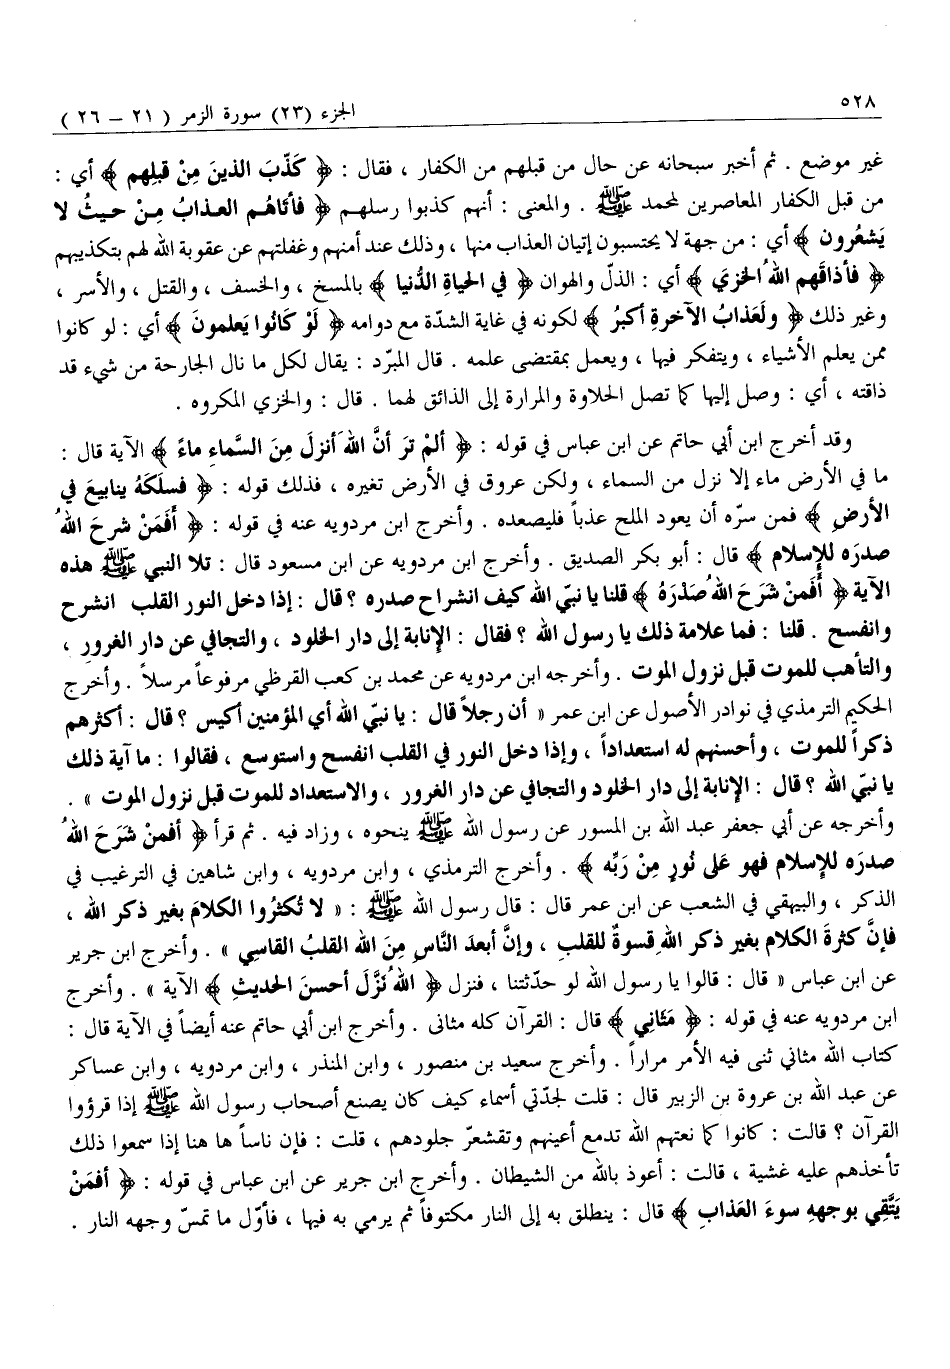 ٥٢٨
الجزء (٢٣) سورة الزمر ( ٢١ – ٢٦ )
غير موضع . ثم أخبر سبحانه عن حال من قبلهم من الكفار ، فقال : ﴿ كَذّبَ الذينَ مِنْ قبلِهم ﴾ أي :
من قبل الكفار المعاصرين لمحمد ﷺ . والمعنى : أنهم كذبوا رسلهم ﴿ فأتاهُم العذابُ مِنْ حيثُ لا
يَشعُرون ﴾ أي : من جهة لا يحتسبون إتيان العذاب منها ، وذلك عند أمنهم وغفلتهم عن عقوبة الله لهم بتكذيبهم
﴿ فأذاقَهم اللهُ الخزيَ ﴾ أي : الذلّ والهوان ﴿ في الحياةِ الدُّنيا ﴾ بالمسخ ، والخسف ، والقتل ، والأسر ،
وغير ذلك ﴿ ولَعذابُ الآخرةِ أكبرُ ﴾ لكونه في غاية الشدّة مع دوامه ﴿ لَوْ كَانُوا يَعلمونَ ﴾ أي : لو كانوا
ممن يعلم الأشياء ، ويتفكر فيها ، ويعمل بمقتضى علمه . قال المبرّد : يقال لكل ما نال الجارحة من شيء قد
ذاقته ، أي : وصل إليها كما تصل الحلاوة والمرارة إلى الذائق لهما . قال : والخزي المكروه .
وقد أخرج ابن أبي حاتم عن ابن عباس في قوله : ﴿ ألمْ ترَ أنَّ اللهَ أنزلَ مِنَ السَّماءِ ماءً ﴾ الآية قال :
ما في الأرض ماء إلا نزل من السماء ، ولكن عروق في الأرض تغيره ، فذلك قوله : ﴿ فسلَكَهُ ينابيعَ في
الأرضِ ﴾ فمن سرّه أن يعود الملح عذباً فليصعده . وأخرج ابن مردويه عنه في قوله : ﴿ أَفَمَنْ شرحَ اللهُ
صدرَه للإسلام ﴾ قال : أبو بكر الصديق . وأخرج ابن مردويه عن ابن مسعود قال : تلا النبي ﷺ هذه
الآية ﴿ أَفَمنْ شَرَحَ اللهُ صَدْرَهُ ﴾ قلنا يا نبيّ الله كيف انشراح صدره ؟ قال : إذا دخل النور القلب انشرح
وانفسح . قلنا : فما علامة ذلك يا رسول الله ؟ فقال : الإنابة إلى دار الخلود ، والتجافي عن دار الغرورِ ،
والتأهب للموت قبل نزول الموت . وأخرجه ابن مردويه عن محمد بن كعب القرظي مرفوعاً مرسلاً . وأخرج
الحكيم الترمذي في نوادر الأصول عن ابن عمر « أن رجلاً قال : يا نبيّ الله أي المؤمنين أكيس ؟ قال : أكثرهم
ذكراً للموت ، وأحسنهم له استعداداً ، وإذا دخل النور في القلب انفسح واستوسع ، فقالوا : ما آية ذلك
يا نبيّ الله ؟ قال : الإنابة إلى دار الخلود والتجافي عن دار الغرور ، والاستعداد للموت قبل نزول الموت » .
وأخرجه عن أبي جعفر عبد الله بن المسور عن رسول الله ﷺ بنحوه ، وزاد فيه . ثم قرأ ﴿ أفمنْ شَرَحَ اللهُ
صدرَه للإسلام فهو عَلى نُورٍ مِنْ رَبِّه ﴾ . وأخرج الترمذي ، وابن مردويه ، وابن شاهين في الترغيب في
الذكر ، والبيهقي في الشعب عن ابن عمر قال : قال رسول الله ﷺ : « لا تُكثرُوا الكلامَ بغير ذكر الله ،
فإنَّ كثرةَ الكلام بغير ذكر اللهِ قسوةٌ للقلبِ ، وإنَّ أبعدَ النَّاسِ مِنَ الله القلبُ القاسِي » . وأخرج ابن جرير
عن ابن عباس « قال : قالوا يا رسول الله لو حدّثتنا ، فنزل ﴿ اللهُ نَزَّلَ أحسنَ الحديثِ ﴾ الآية » . وأخرج
ابن مردويه عنه في قوله : ﴿ مَثَانِي ﴾ قال : القرآن كله مثانى . وأخرج ابن أبي حاتم عنه أيضاً في الآية قال :
كتاب الله مثاني ثنى فيه الأمر مراراً . وأخرج سعيد بن منصور ، وابن المنذر ، وابن مردويه ، وابن عساكر
عن عبد الله بن عروة بن الزبير قال : قلت لجدّتي أسماء كيف كان يصنع أصحاب رسول الله ﷺ إذا قرؤوا
القرآن ؟ قالت : كانوا كما نعتهم الله تدمع أعينهم وتقشعرّ جلودهم ، قلت : فإن ناساً ها هنا إذا سمعوا ذلك
تأخذهم عليه غشية ، قالت : أعوذ بالله من الشيطان . وأخرج ابن جرير عن ابن عباس في قوله : ﴿ أفمَنْ
يَتَّقِي بوجههِ سوءَ العَذابِ ﴾ قال : ينطلق به إلى النار مكتوفاً ثم يرمي به فيها ، فأوّل ما تمسّ وجهه النار .